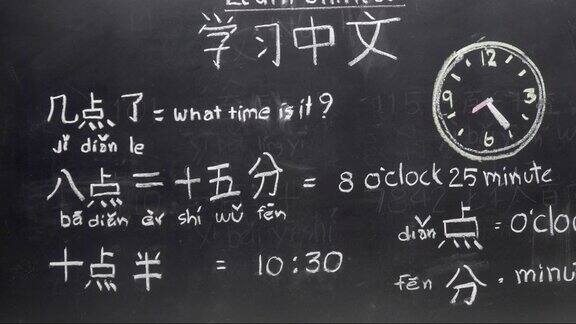 Learn Chinese
学习中文
12
9 3
6
几点了 = what time is it ?
jǐ diǎn le
八点二十五分 = 8 o'clock 25 minute
bā diǎn èr shí wǔ fēn
diǎn 点 = o'cloc
十点半 = 10:30
fēn 分 = minu